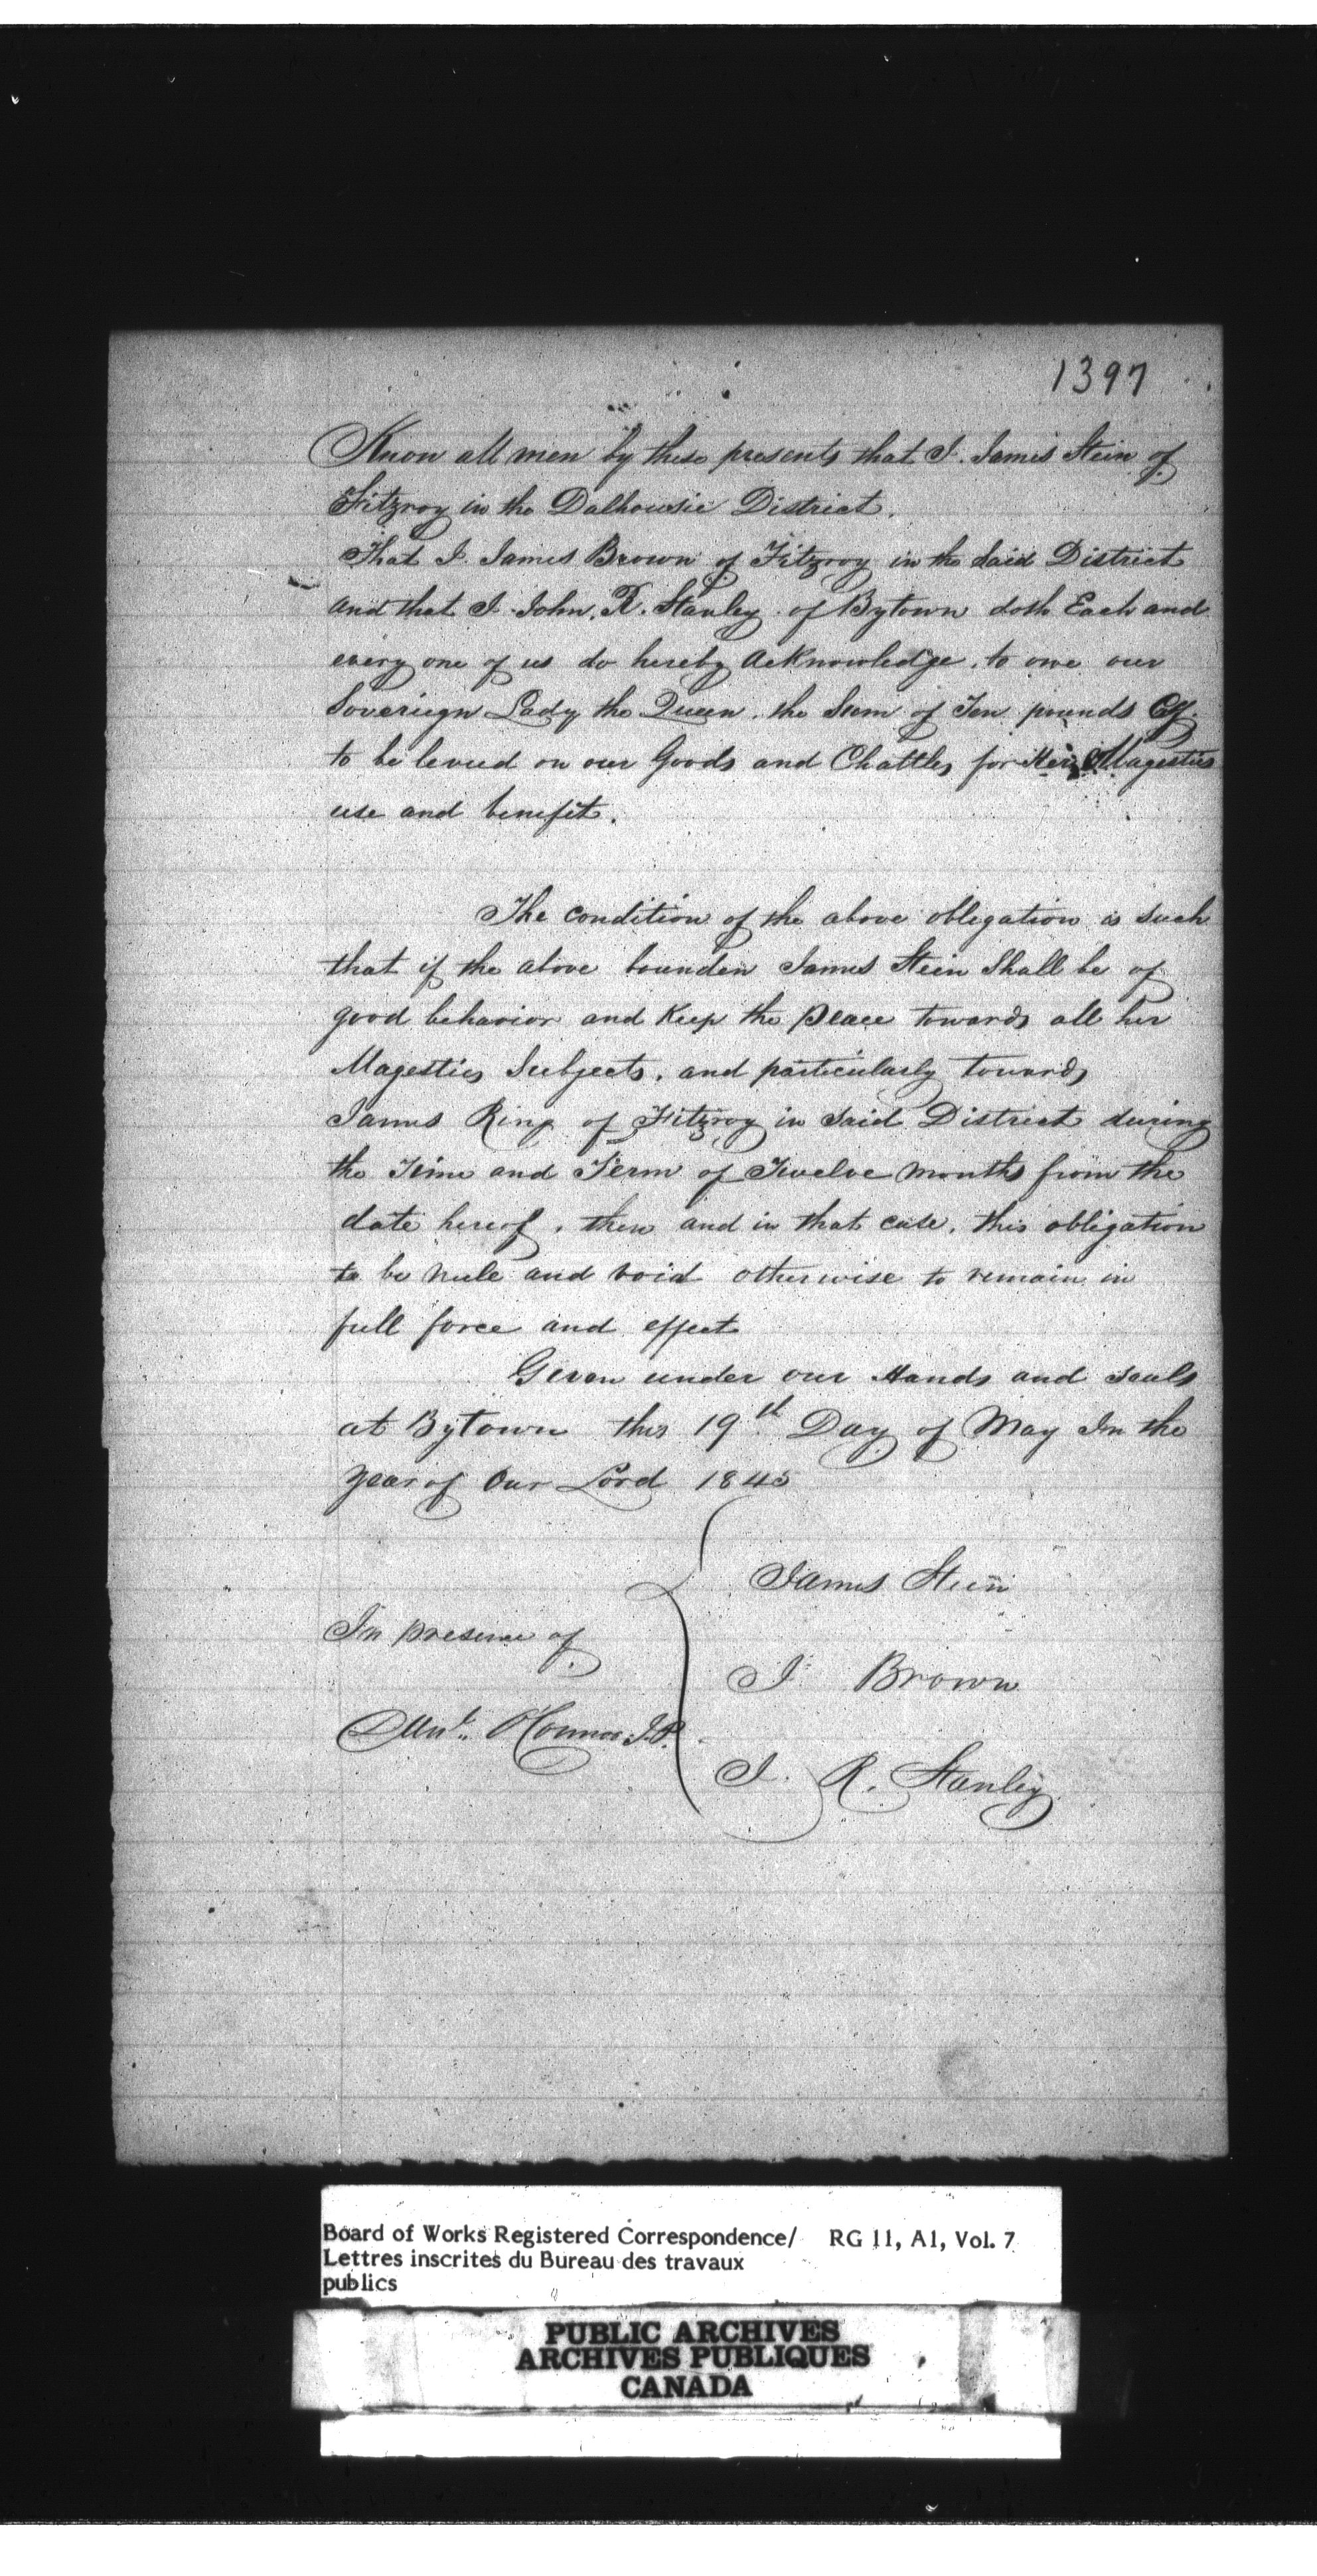 1397
Know all men by these presents that I. James Stein of
Fitzroy in the Dalhousie District.
That I James Brown of Fitzroy in the Said District
and that I John. R. Stanley of Bytown doth Each and
every one of us do hereby acknowledge. to owe our
Soveriegn Lady the Queen. the Sum of Ten pounds Cy.
to be levied on our Goods and Chattles for Her Magesties
use and benefit.
The condition of the above obligation is Such
that if the above bounden James Stein Shall be of
good behavior and Keep the peace towards all her
Magesties Subjects. and particularly towards
James Ring of Fitzroy in Said District during
the Time and Term of Twelve months from the
date hereof. then and in that case. this obligation
to be nule and void otherwise to remain in
full force and effect
Geven under our Hands and seals
at Bytown this 19th Day of May In the
year of Our Lord 1843
James Stein
In presence of
J Brown
OConnor J.P.
J. R. Stanley
Board of Works Registered Correspondence/ RG 11, A1, Vol. 7
Lettres inscrites du Bureau des travaux
publics
PUBLIC ARCHIVES
ARCHIVES PUBLIQUES
CANADA